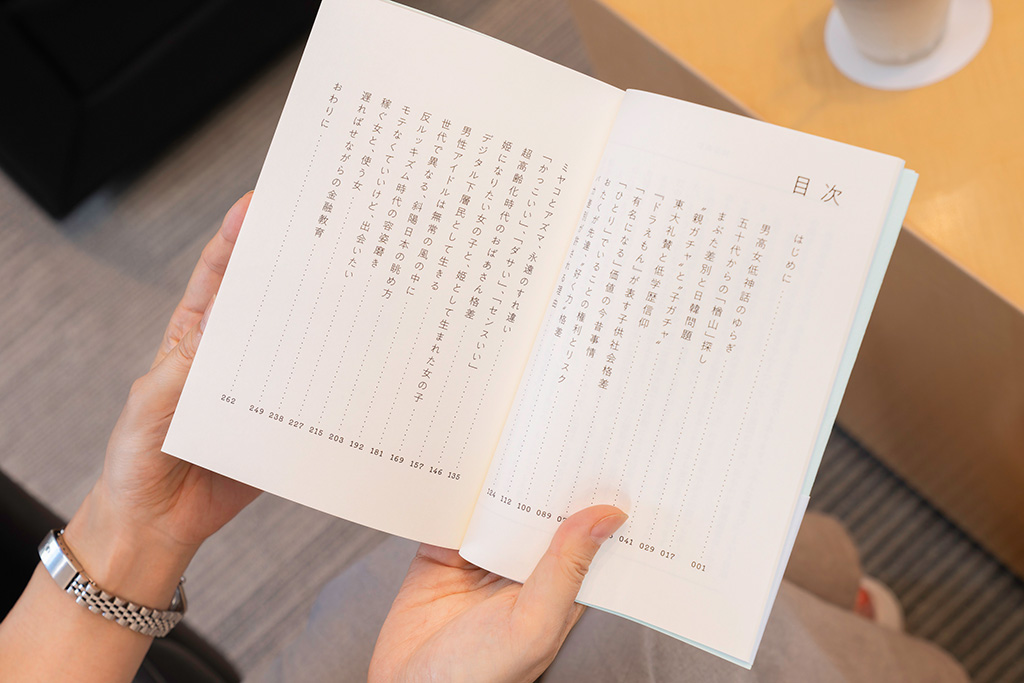 目次
はじめに 001
男高女低神話のゆらぎ 017
五十代からの「楢山」探し 029
まぶた差別と日韓問題 041
〝親ガチャ〟と〝子ガチャ〟
東大礼賛と低学歴信仰
「ドラえもん」が表す子供社会格差
「有名になる」価値の今昔事情 089
「ひとり」でいることの権利とリスク 100
おたくが先達、〝好く力〟格差 112
124
ミヤコとアズマ、永遠のすれ違い 135
「かっこいい」、「ダサい」、「センスいい」 146
超高齢化時代のおばあさん格差 157
姫になりたい女の子と、姫として生まれた女の子 169
デジタル下層民として生きる 181
男性アイドルは無常の風の中に 192
世代で異なる、斜陽日本の眺め方 203
反ルッキズム時代の容姿磨き 215
モテなくていいけど、出会いたい 227
稼ぐ女と、使う女 238
遅ればせながらの金融教育 249
おわりに 262